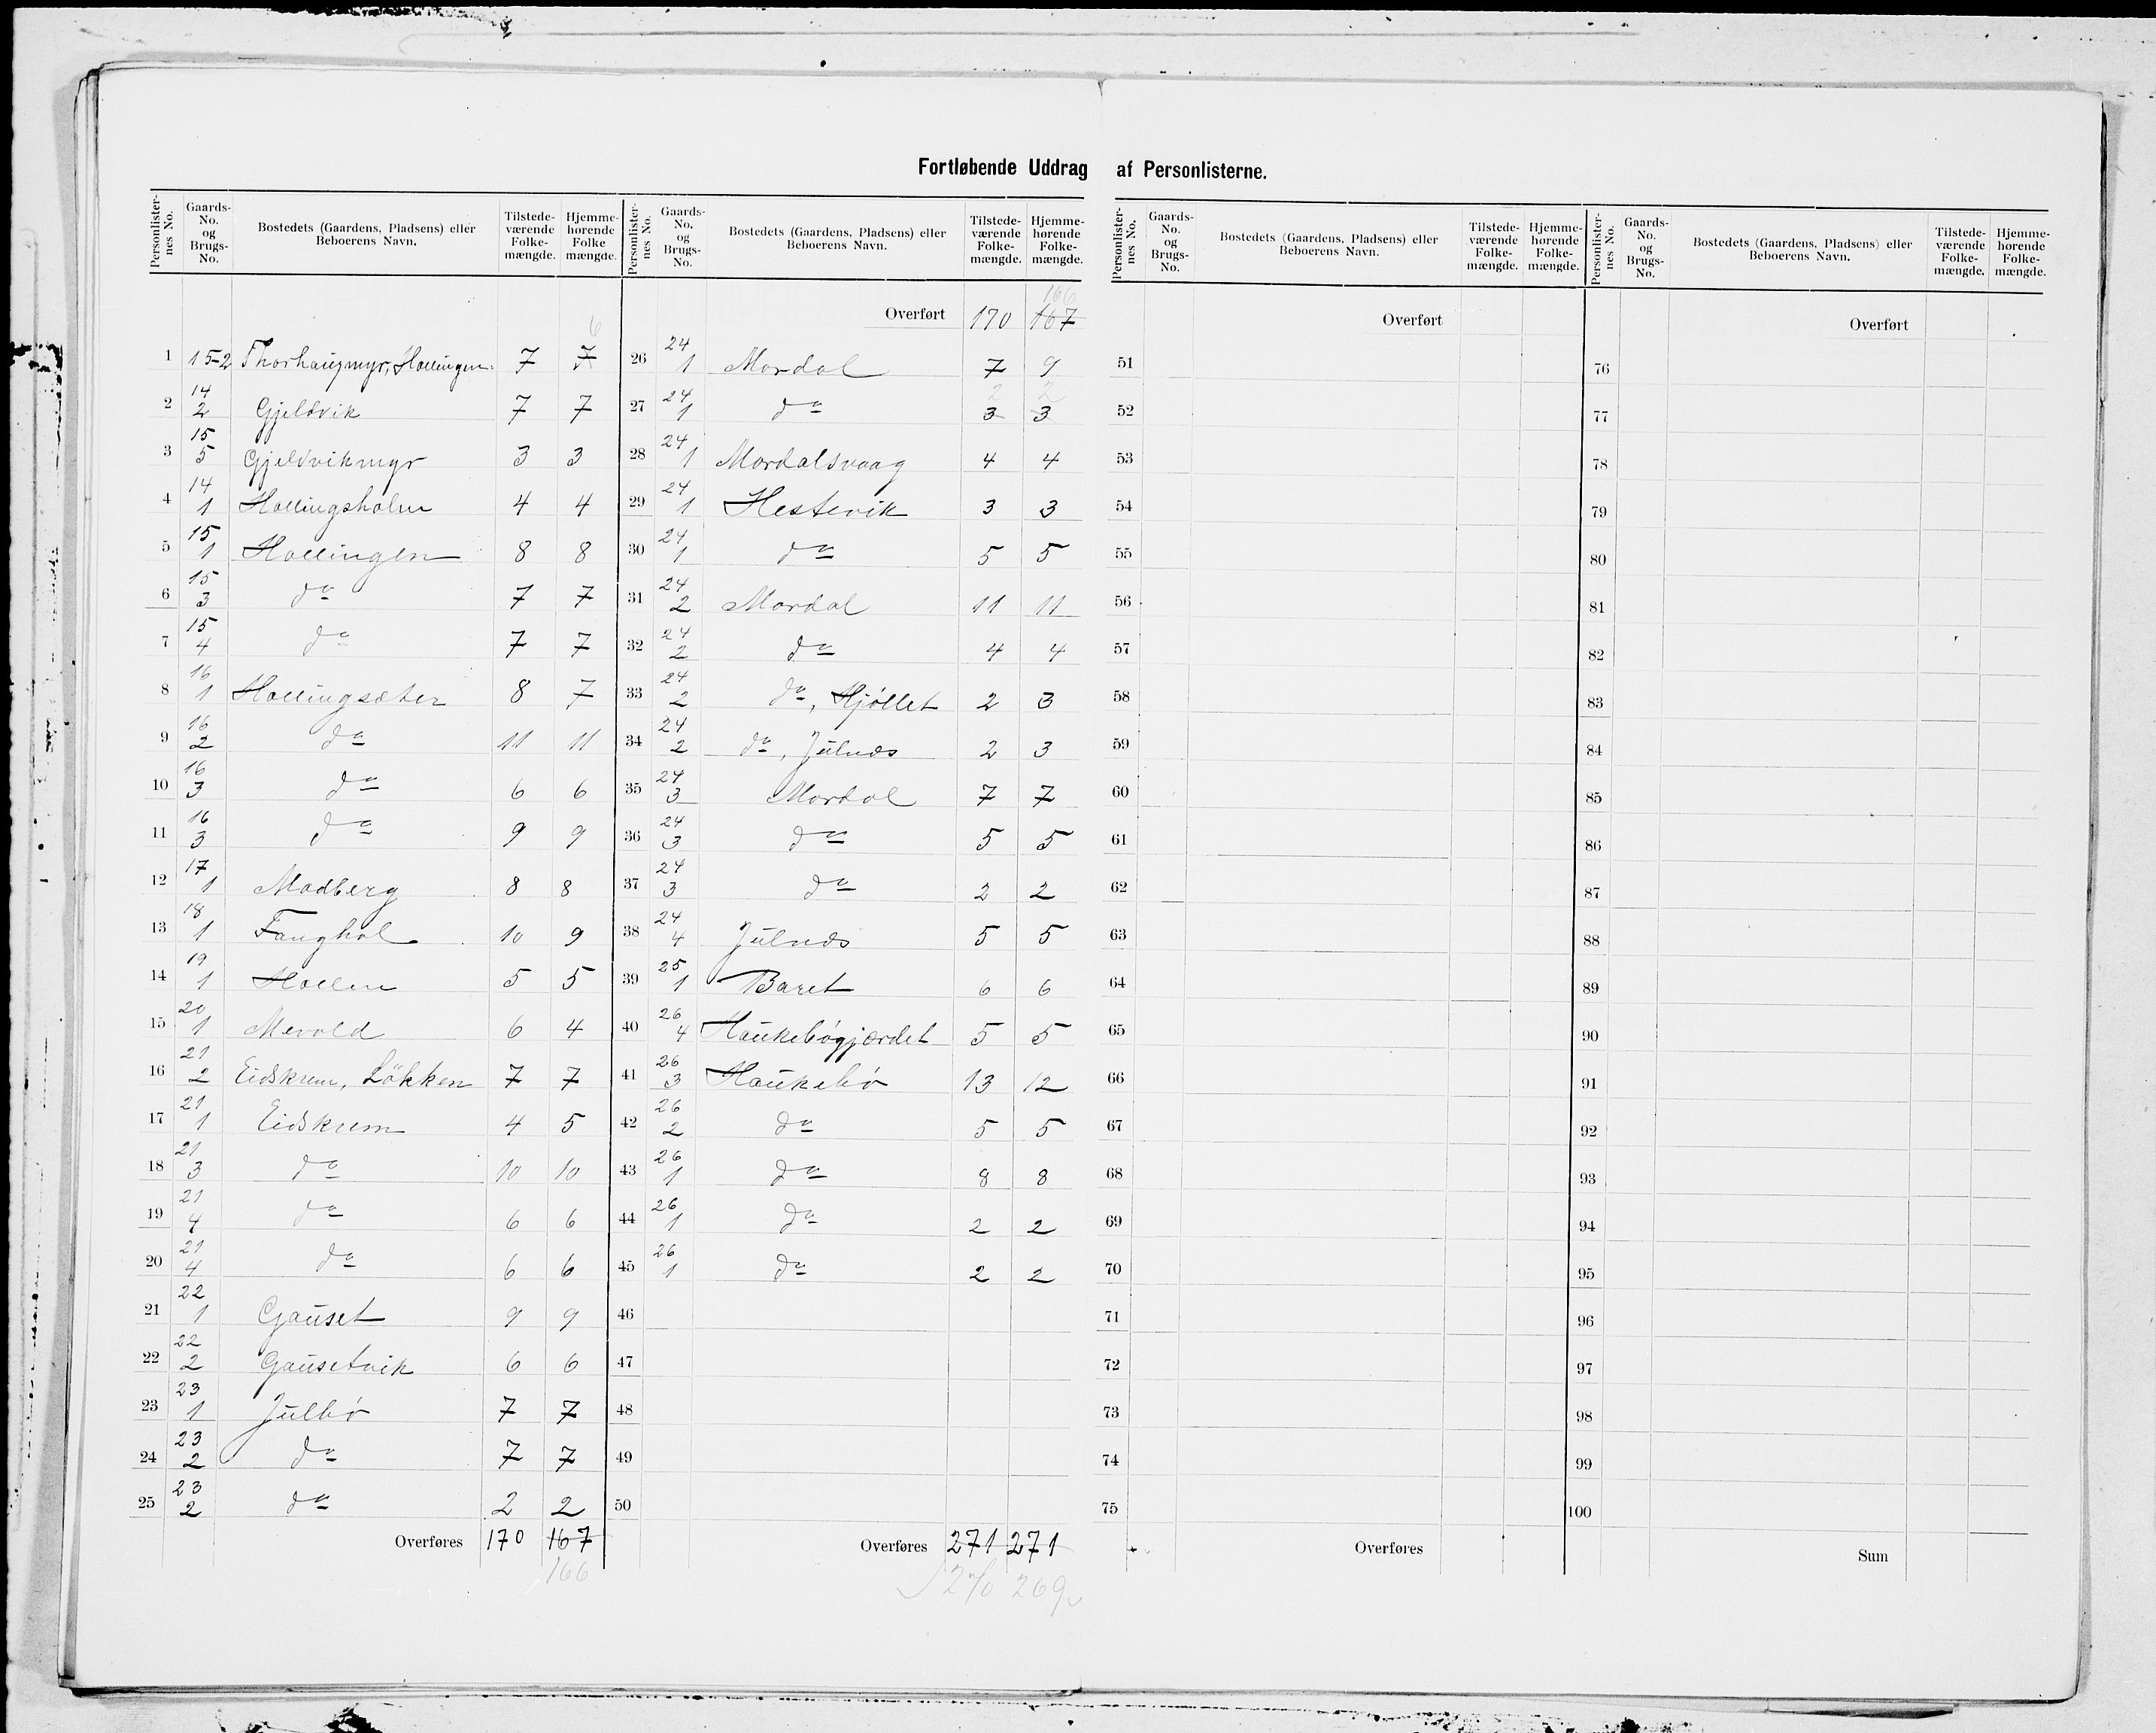 Fortløbende Uddrag af Personlisterne.
Personlister-nes No. | Gaards-No. og Brugs-No. | Bostedets (Gaardens, Pladsens) eller Beboerens Navn. | Tilstede-værende Folke-mængde. | Hjemme-hørende Folke mængde.
1 | 15-2 | Thorhaugmyr, Hollingen | 7 | 7 6
2 | 14 2 | Gjeldvik | 7 | 7
3 | 15 5 | Gjeldvikmyr | 3 | 3
4 | 14 1 | Hollingsholm | 4 | 4
5 | 15 1 | Hollingen | 8 | 8
6 | 15 3 | do | 7 | 7
7 | 15 4 | do | 7 | 7
8 | 16 1 | Hollingsæter | 8 | 7
9 | 16 2 | do | 11 | 11
10 | 16 3 | do | 6 | 6
11 | 16 3 | do | 9 | 9
12 | 17 1 | Madberg | 8 | 8
13 | 18 1 | Fanghol | 10 | 9
14 | 19 1 | Hollen | 5 | 5
15 | 20 1 | Mevold | 6 | 4
16 | 21 2 | Eidskrem, Løkken | 7 | 7
17 | 21 1 | Eidskrem | 4 | 5
18 | 21 3 | do | 10 | 10
19 | 21 4 | do | 6 | 6
20 | 21 4 | do | 6 | 6
21 | 22 1 | Gauset | 9 | 9
22 | 22 2 | Gausetvik | 6 | 6
23 | 23 1 | Julbø | 7 | 7
24 | 23 2 | do | 7 | 7
25 | 23 2 | do | 2 | 2
Overføres | 170 | 167
166
Personlister-nes No. | Gaards-No. og Brugs-No. | Bostedets (Gaardens, Pladsens) eller Beboerens Navn. | Tilstede-værende Folke-mængde. | Hjemme-hørende Folke-mængde.
166
Overført | 170 | 167
26 | 24 1 | Mordal | 7 | 9
27 | 24 1 | do | 3 2 | 3 2
28 | 24 1 | Mordalsvaag | 4 | 4
29 | 24 1 | Hestevik | 3 | 3
30 | 24 1 | do | 5 | 5
31 | 24 2 | Mordal | 11 | 11
32 | 24 2 | do | 4 | 4
33 | 24 2 | do, Hjøllet | 2 | 3
34 | 24 2 | do, Julnæs | 2 | 3
35 | 24 3 | Mordal | 7 | 7
36 | 24 3 | do | 5 | 5
37 | 24 3 | do | 2 | 2
38 | 24 4 | Julnæs | 5 | 5
39 | 25 1 | Baret | 6 | 6
40 | 26 4 | Haukebøgjærdet | 5 | 5
41 | 26 3 | Haukebø | 13 | 12
42 | 26 2 | do | 5 | 5
43 | 26 1 | do | 8 | 8
44 | 26 1 | do | 2 | 2
45 | 26 1 | do | 2 | 2
46
47
48
49
50
Overføres | 271 | 271
270 269
Personlister-nes No. | Gaards-No. og Brugs-No. | Bostedets (Gaardens, Pladsens) eller Beboerens Navn. | Tilstede-værende Folke-mængde. | Hjemme-hørende Folke-mængde.
Overført
51
52
53
54
55
56
57
58
59
60
61
62
63
64
65
66
67
68
69
70
71
72
73
74
75
Overføres
Personlister-nes No. | Gaards-No. og Brugs-No. | Bostedets (Gaardens, Pladsens) eller Beboerens Navn. | Tilstede-værende Folke-mængde. | Hjemme-hørende Folke-mængde.
Overført
76
77
78
79
80
81
82
83
84
85
86
87
88
89
90
91
92
93
94
95
96
97
98
99
100
Sum